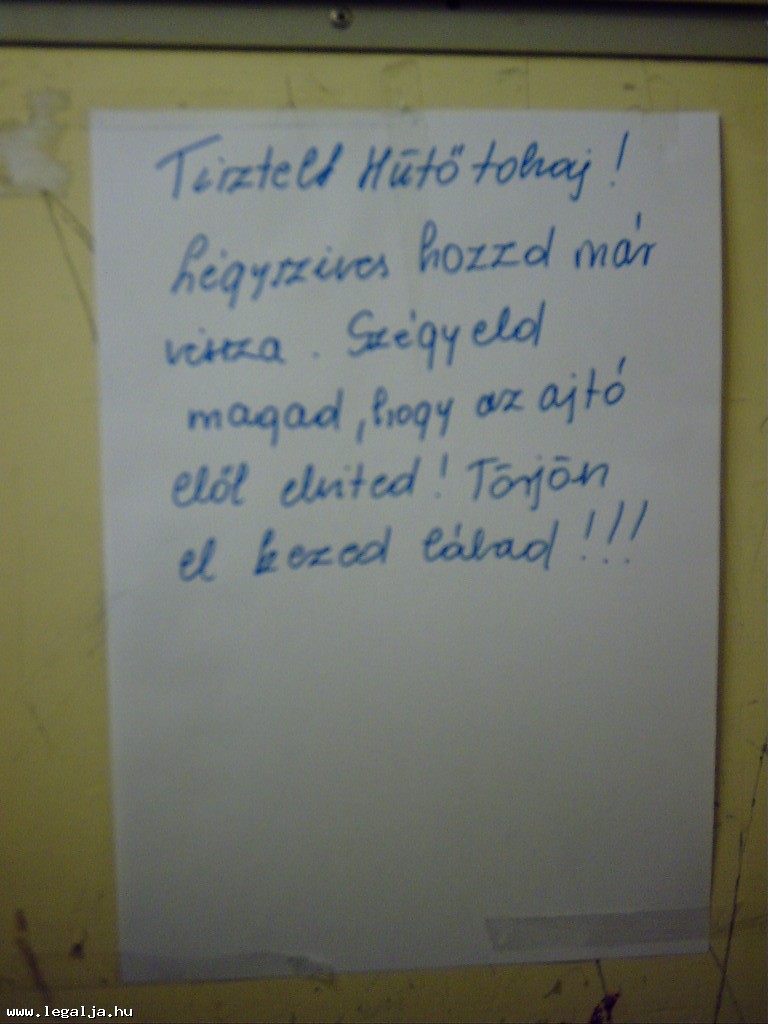 Tisztelt Hűtő tolvaj!
Légyszíves hozzd már
vissza. Szégyeld
magad, hogy az ajtó
elől elvited! Törjön
el kezed lábad!!!
www.legalja.hu